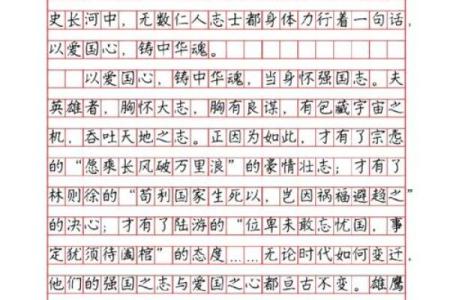 史长河中，无数仁人志士都身体力行着一句话，
以爱国心，铸中华魂。
以爱国心，铸中华魂，当身怀强国志。夫
英雄者，胸怀大志，胸有良谋，有包藏宇宙之
机，吞吐天地之志。正因为如此，才有了宗悫
的“愿乘长风破万里浪”的豪情壮志；才有了
林则徐的“苟利国家生死以，岂因祸福避趋之”
的决心；才有了陆游的“位卑未敢忘忧国，事
定犹须待阖棺”的态度……无论时代如何变迁，
他们的强国之志与爱国之心都亘古不变。雄鹰